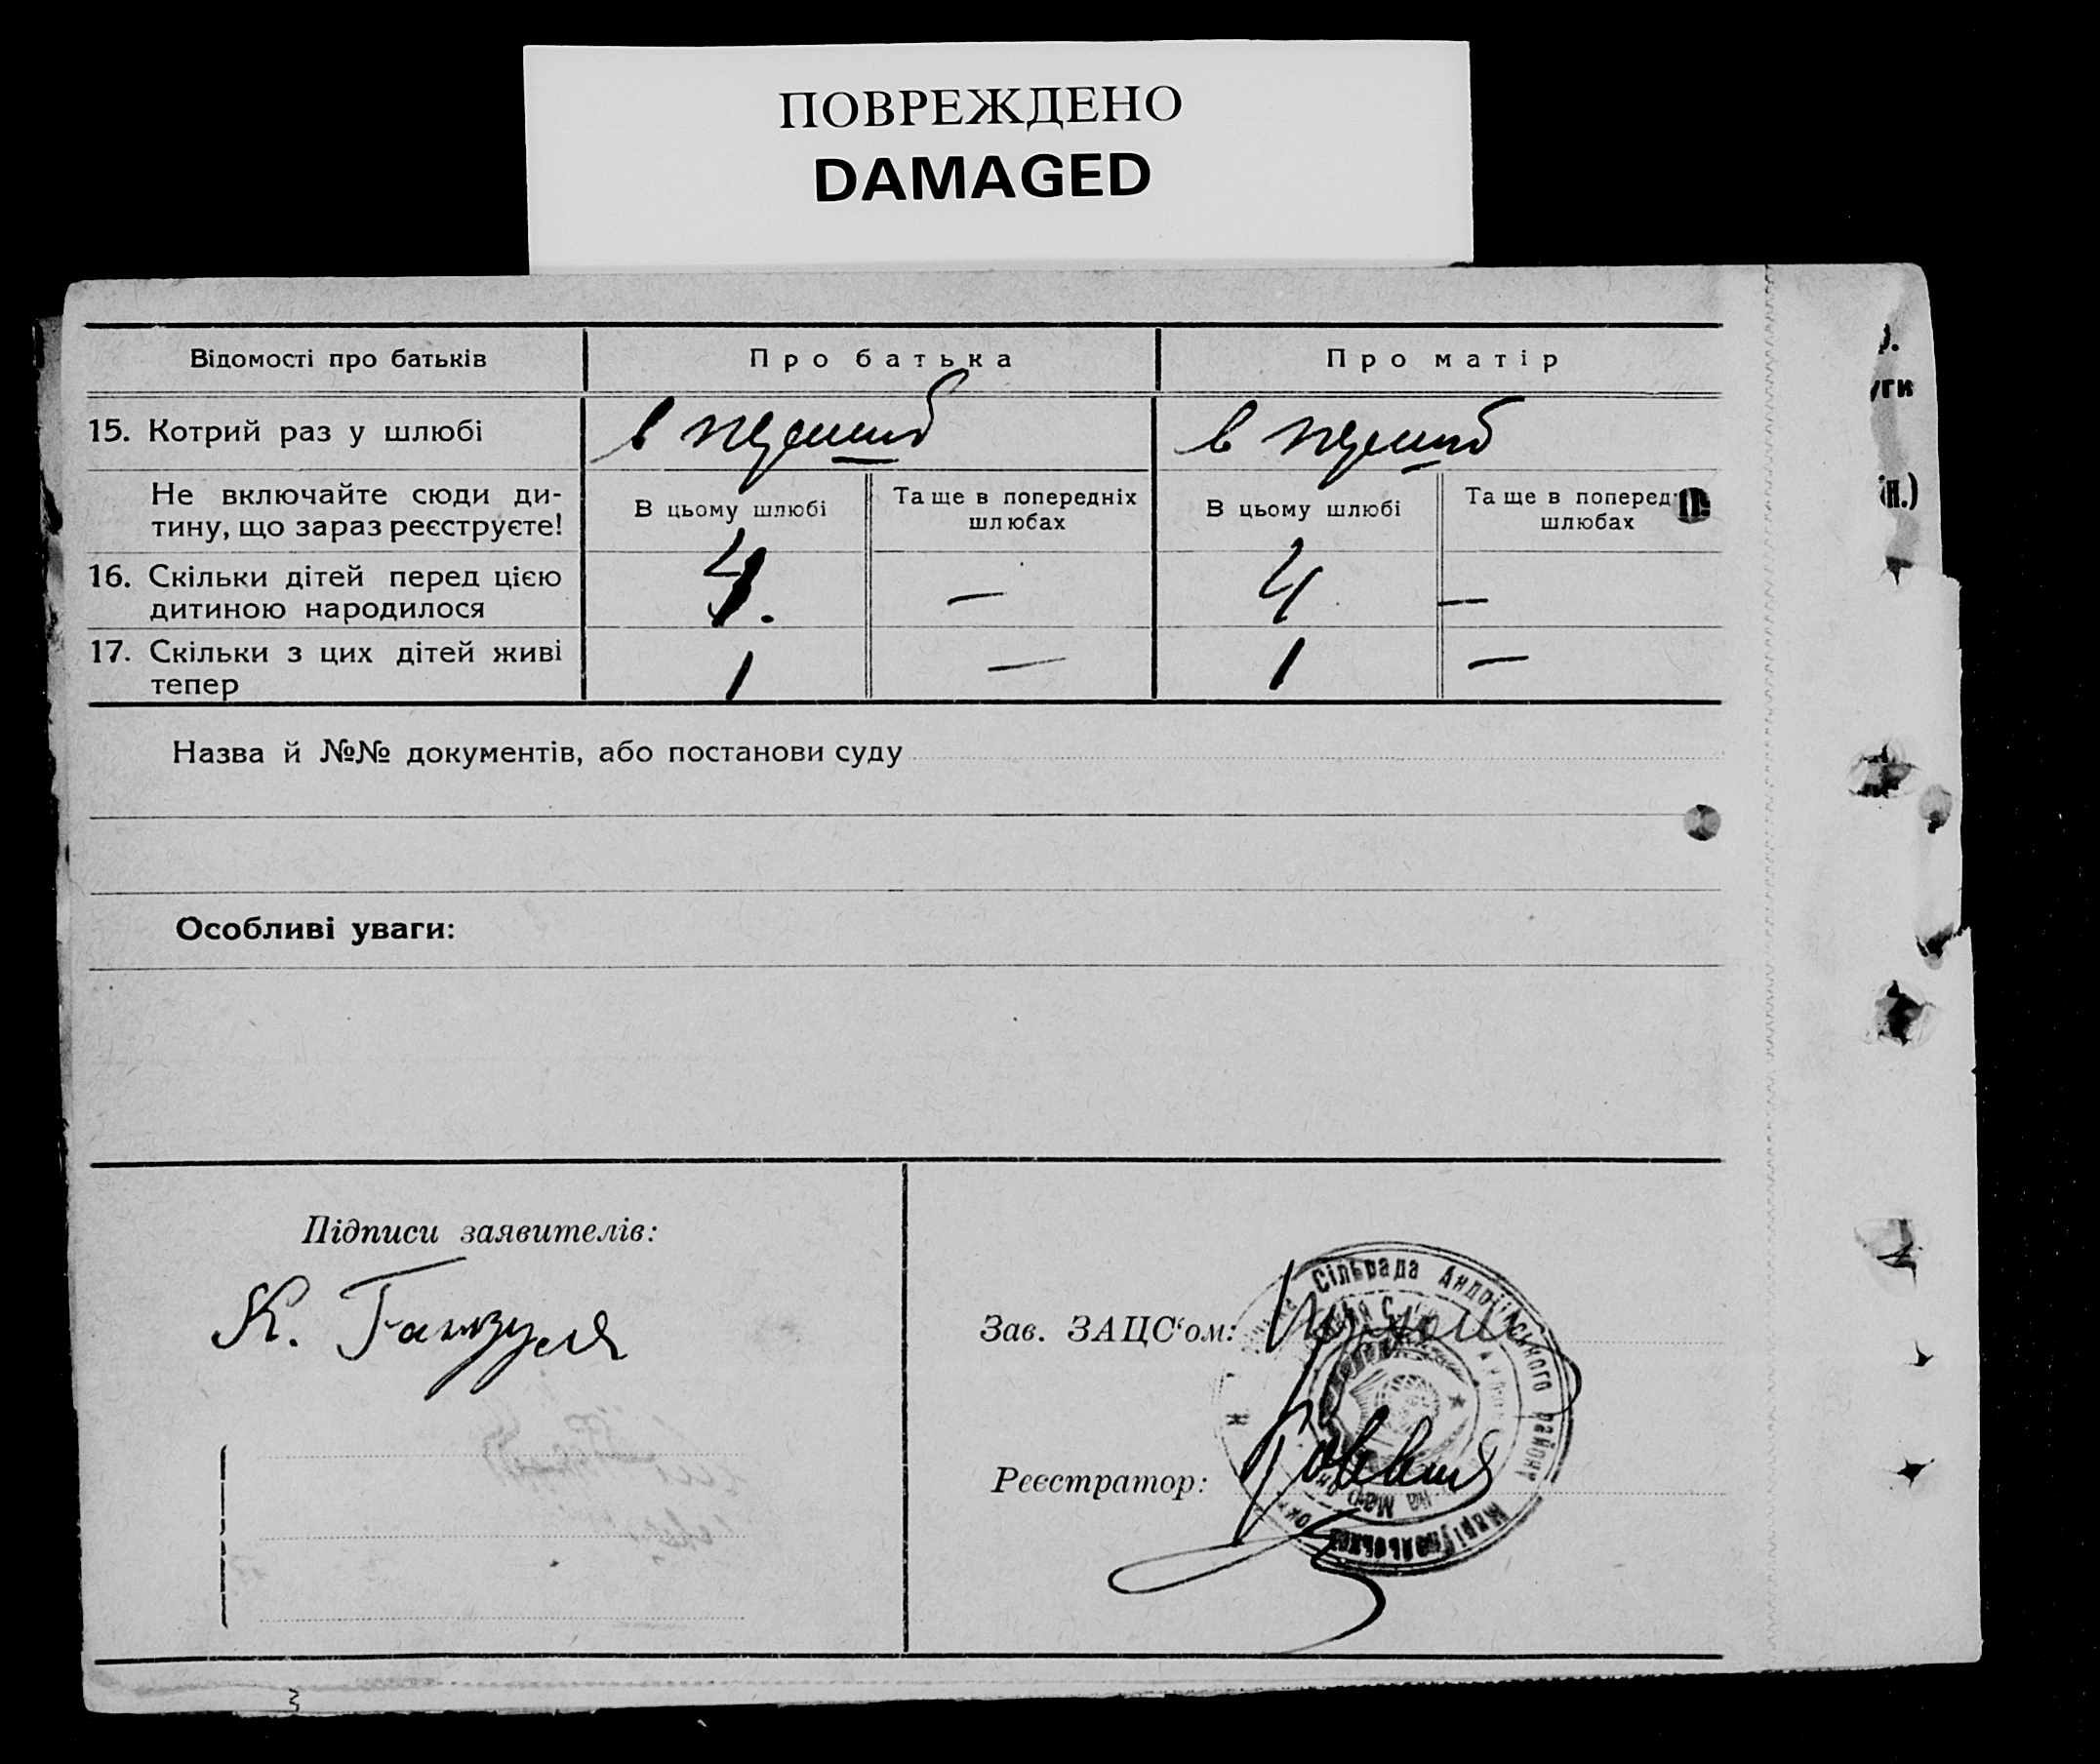 ПОВРЕЖДЕНО
DAMAGED
Відомості про батьків
Про батька
Про матір
15. Котрий раз у шлюбі
в
в
Не включайте сюди ди-
тину, що зараз реєструєте!
В цьому шлюбі
Та ще в попередніх
шлюбах
В цьому шлюбі
Та ще в поперед
шлюбах
16. Скільки дітей перед цією
дитиною народилося
4.
—
4
—
17. Скільки з цих дітей живі
тепер
1
—
1
—
Назва й №№ документів, або постанови суду
Особливі уваги:
Підписи заявителів:
К.
Зав. ЗАЦС‘ом:
Реєстратор:
Сільрада Андріївського району
Маріупільської
).
уги
ін.)